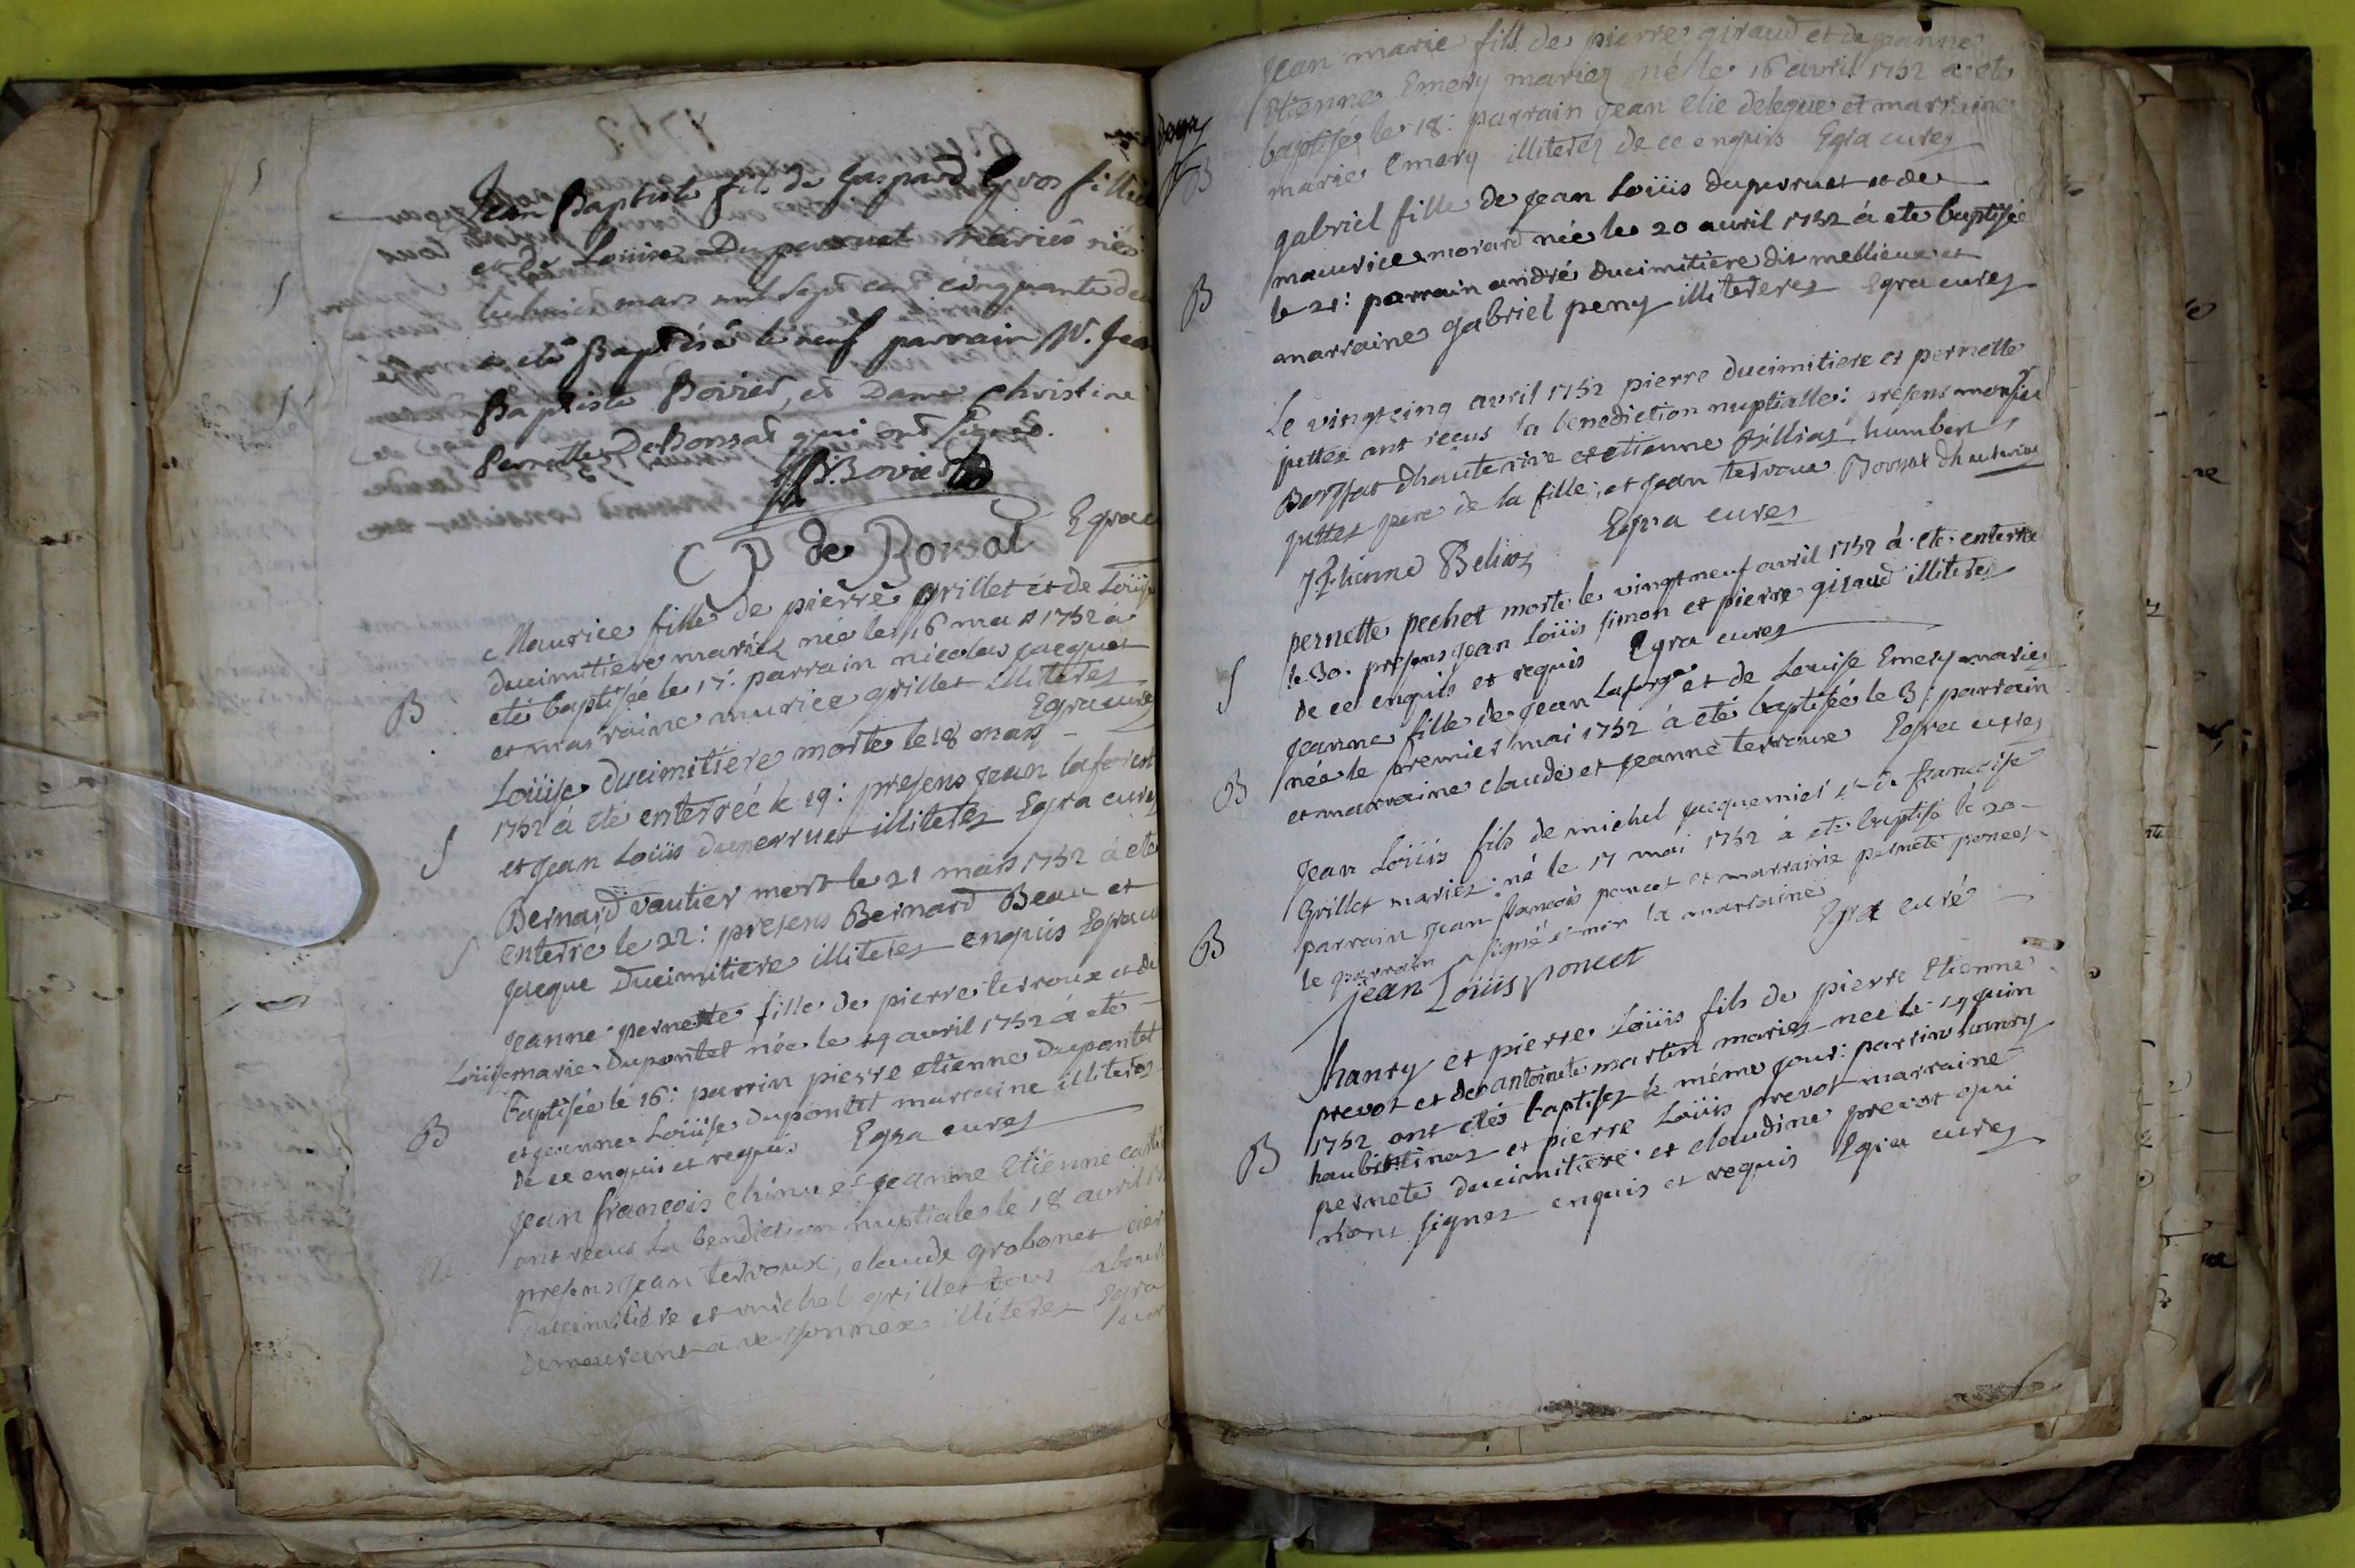 Jean Baptiste fils de Gaspard Gros fillie
et de Loüise Duperruet Mariés né
le huict mars mil Sept cent cinquante deu
a eté Baptisé le neuf parrain M. Jea
Baptiste Bovier, et Dame Christine
Pernette De Borsat qui ont Signés.
J.B. Bovier
C P de Borsat Egra c
Maurice fille de pierre grillet et de Loüise
ducimitiere mariez née le 16 mars 1752 à
B eté baptisée le 17: parrain nicolas jacquet
et marraine murice grillet illiteres
Egra curez
Loüise ducimitiere morte le 18 mars
1752 à eté enterrée le 19: presens jean laforest
S et jean Loüis duperruet illiteres Egra curez
Bernard vautier mort le 21 mars 1752 à eté
S enterré le 22: presens Bernard Beau et
jacque Ducimitiere illiteres enquis Egra cu
jeanne pernette fille de pierre terroux et de
Loüise marie dupontet née le 14 avril 1752 à eté
baptisée le 16: parrin pierre etienne dupontet
B et jeanne Loüise dupontet marraine illiteres
de ce enquis et requis Egra curez
jean francois chinu et jeanne Etienne carti
ont recus la benediction nuptiale le 18 avril 17
presens jean terroux, claude grobonet
ducimitiere et michel grillet tous labour
demeurant a versonnex illiteres Egra
cur
Jean marie fils de pierre giraud et de jeanne
Etienne Emery mariez né le 16 avril 1752 a eté
baptisé le 18: parrain jean elie deleque et marraine
B marie Emery illiterez de ce enquis Egra curez
gabriel fille de jean Loüis duperruet et de
maurice morard née le 20 avril 1752 à eté baptisée
B le 21: parrain andré ducimitiere dit mellieux et
marraine gabriel peny illitereres Egra curez
Le vingtcinq avril 1752 pierre ducimitiere et pernette
juttet ont reçus la benediction nuptialle: presens monsieur
Borssat dhauterive et etienne Billias humbert
juttet pere de la fille, et jean terroux Borsat dhauterive
Etienne Belias Egra curez
pernette pechet morte le vingtneuf avril 1752 à eté enterrée
S le 30. presens jean Loüis simon et pierre giraud illiteres
de ce enquis et requis Egra curez
jeanne fille de jean Laforge et de Louise Emery mariez
B née le premier mai 1752 à eté baptisée le 3: parrain
et marraine claude et jeanne terroux Egra curez
jean Loüis fils de michel jacquemier et de francoise
Grillet mariez né le 17 mai 1752 à eté baptisé le 20
B parrain jean francois poncet et marraine pernete poncet
le parrain a signé et non la marraine Egra curé
jean Loüis poncet
hanry et pierre Loüis fils de pierre Etienne
prevot et de antoinete martin mariez nez le 19 juin
1752 ont etés baptisez le même jour: parrins hanry
B haubistinaz et pierre Loüis prevot marraine
pernete ducimitiere et claudine prevot qui
nont signez enquis et requis Egra curez